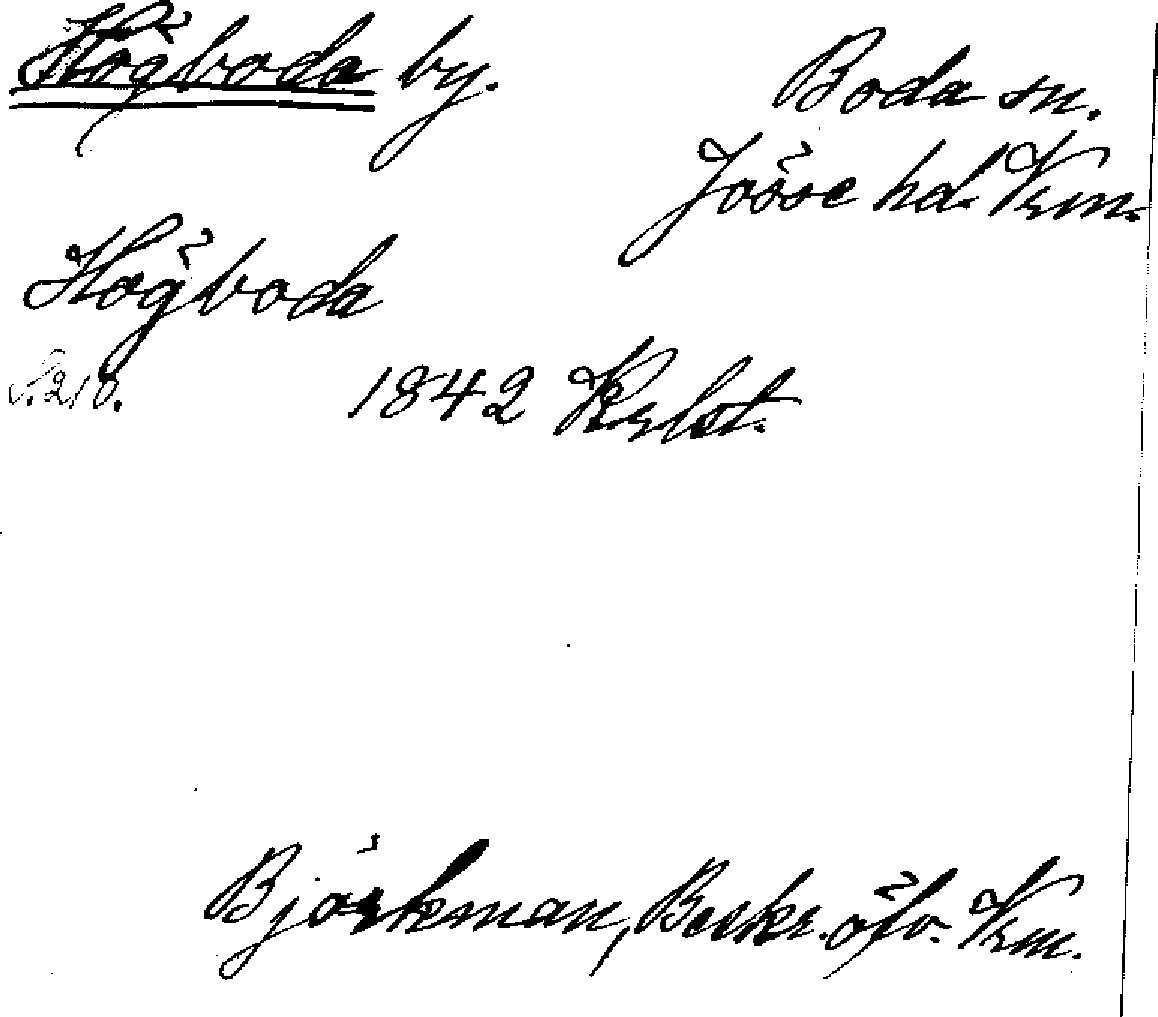 Högboda by.
Boda sn.
Jösse hd. Vrm.
Högboda
S. 218.
1842 Krlst.
Björkman, Beskr. öfv. Vrm.